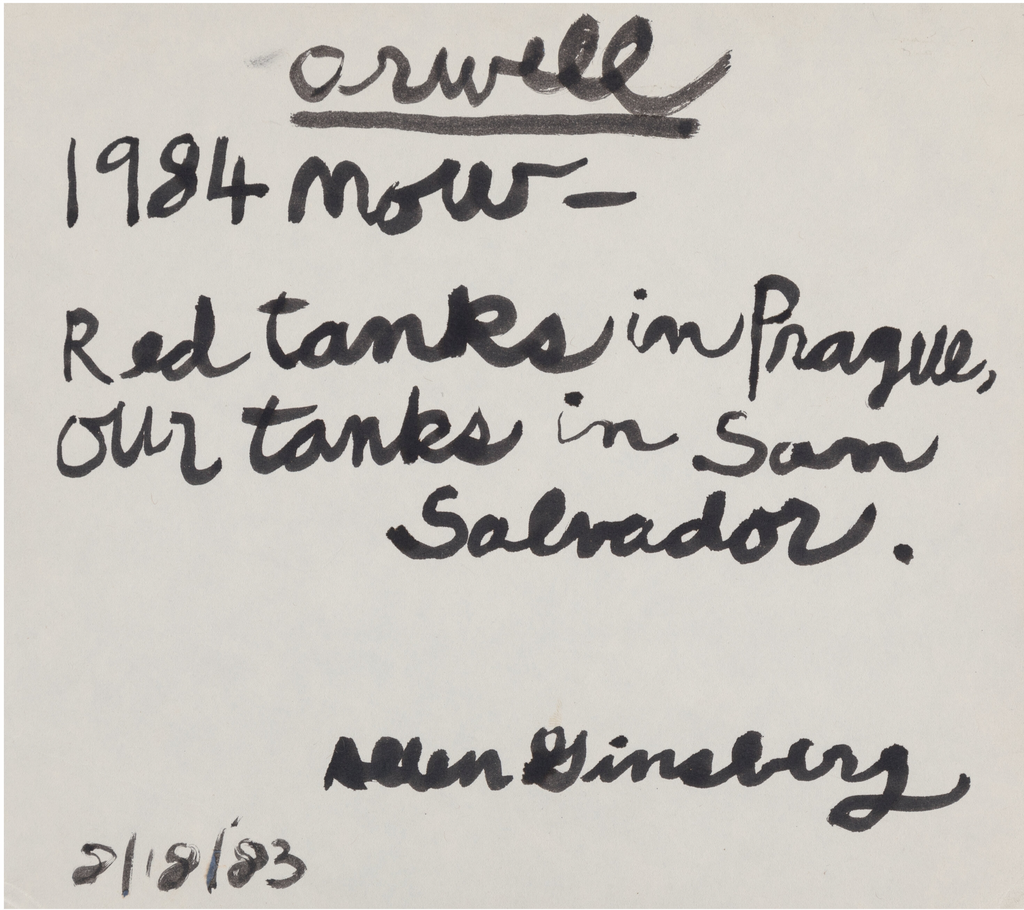 Orwell
1984 Now –
Red tanks in Prague,
our tanks in San
Salvador.
Allen Ginsberg
8/18/83